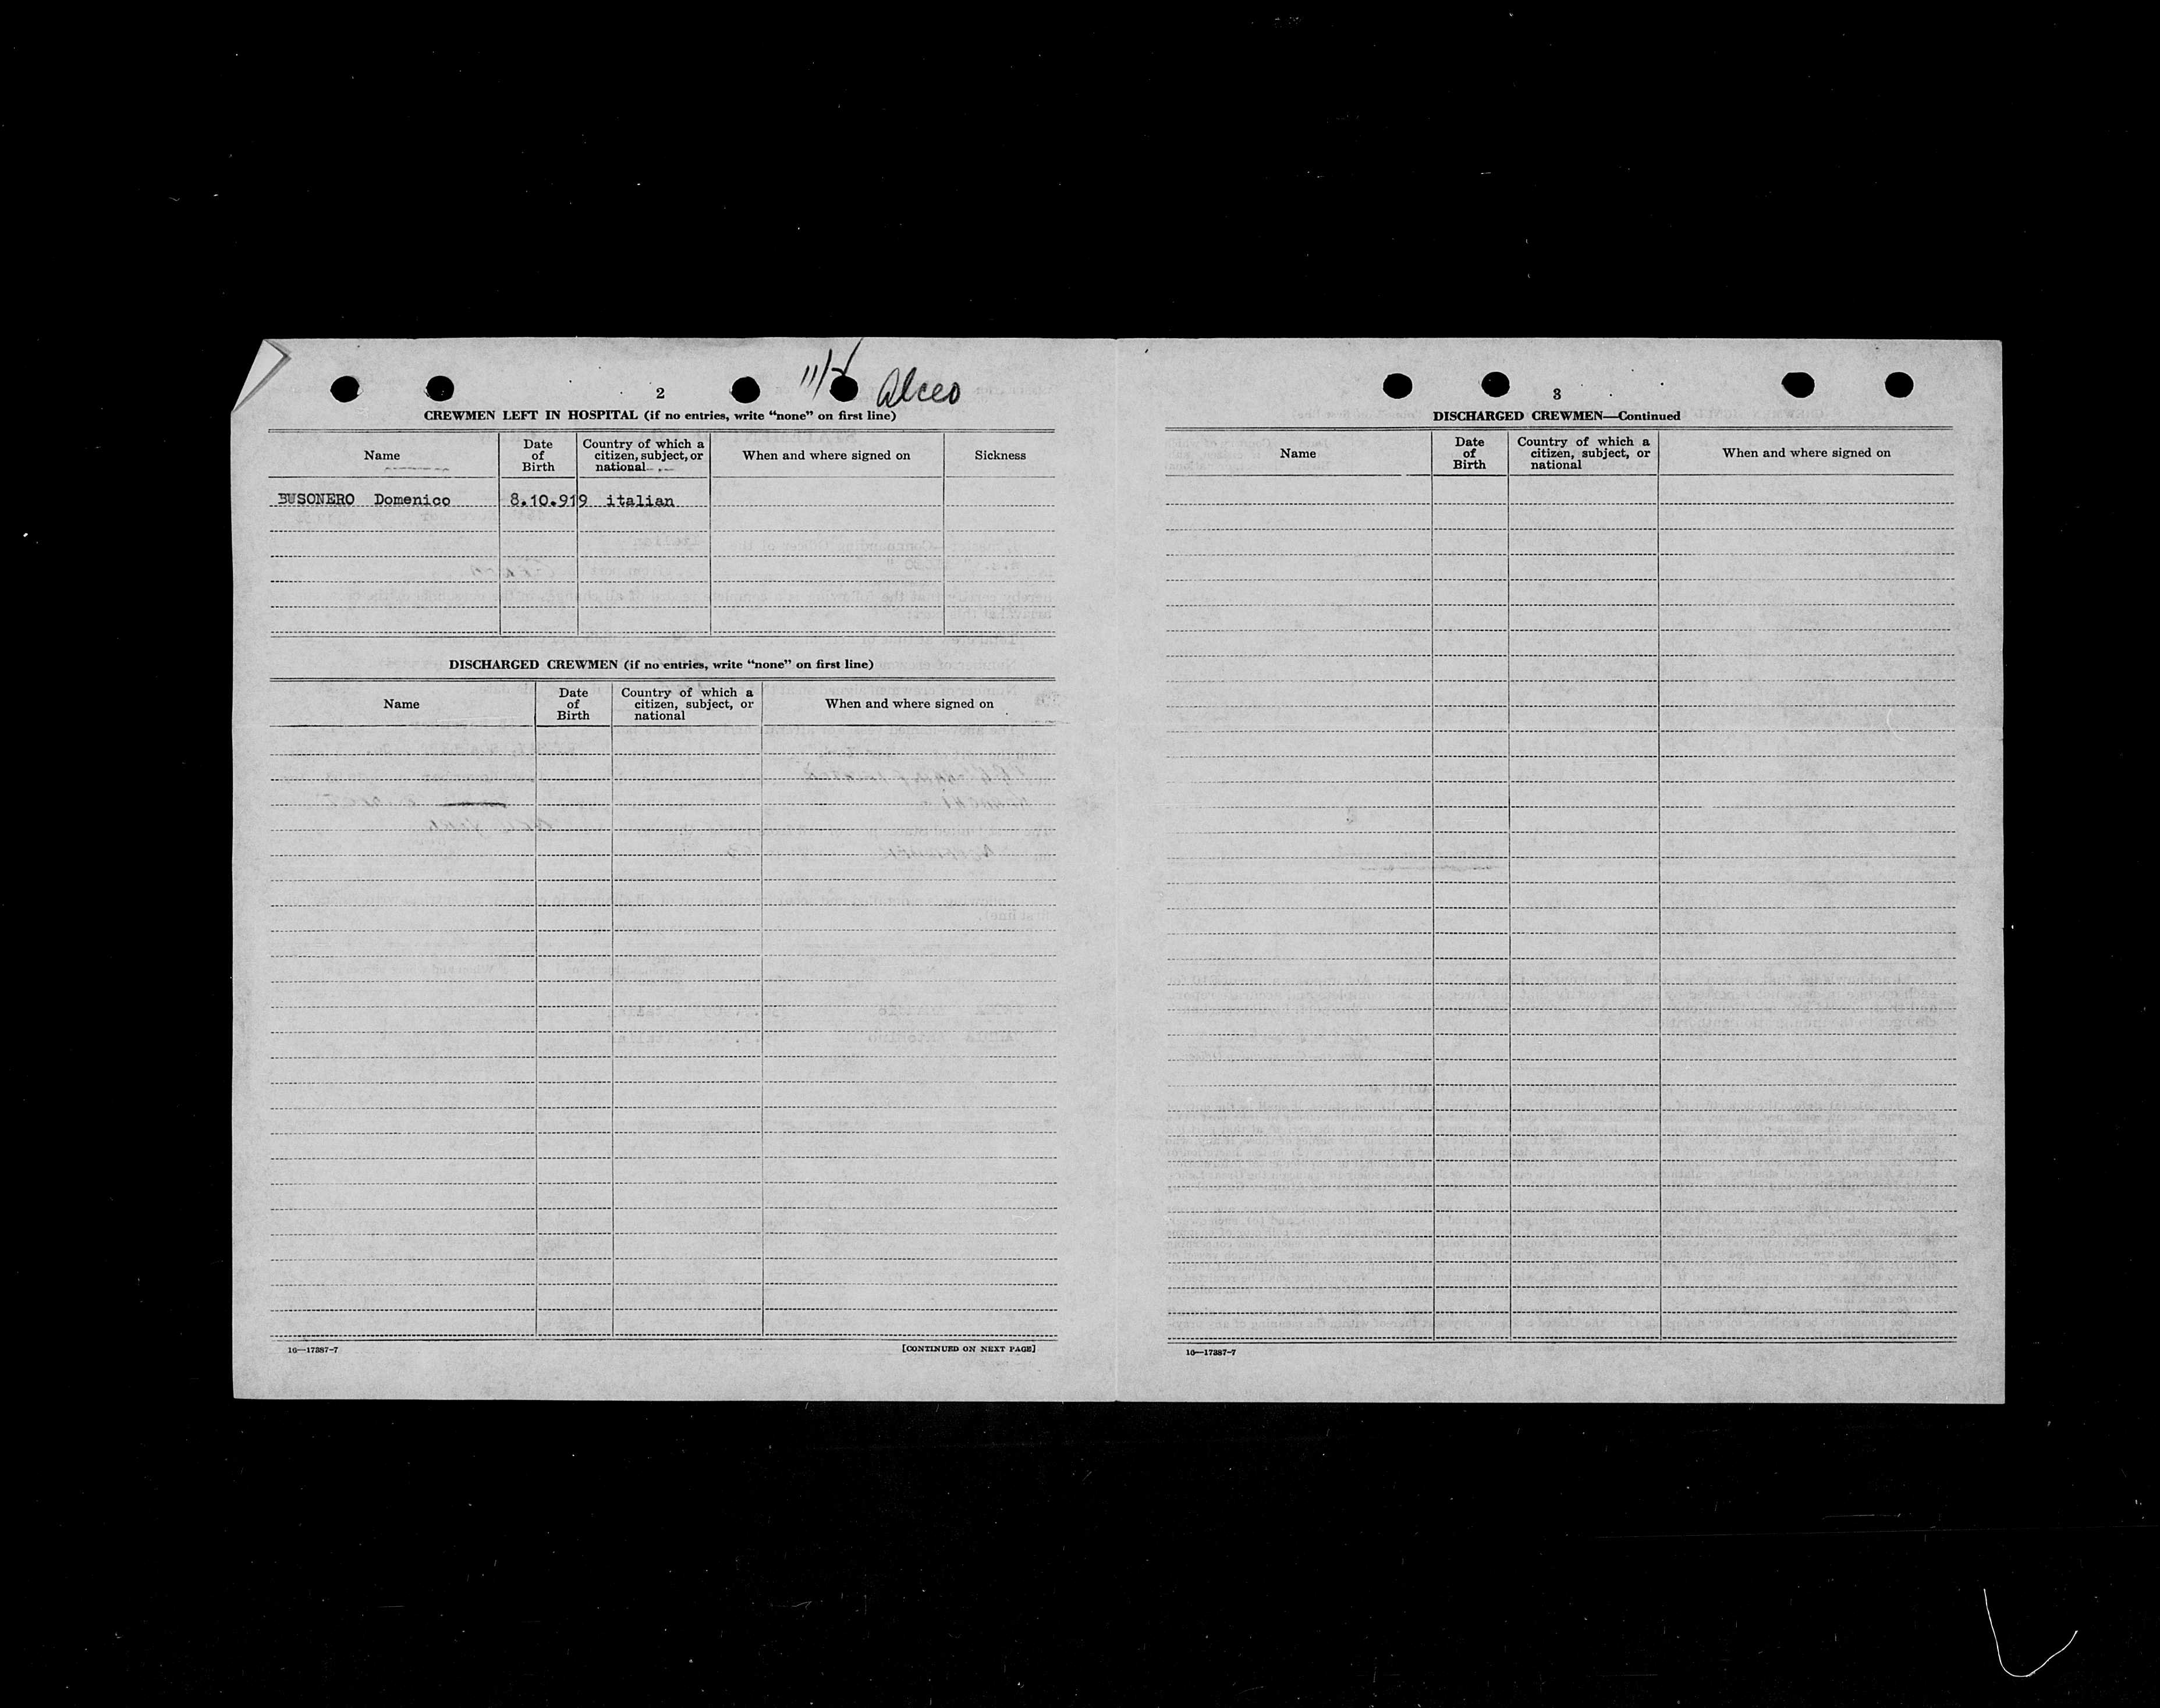 2
11/
Alceo
CREWMEN LEFT IN HOSPITAL (if no entries, write “none” on first line)
Name
Date of Birth
Country of which a citizen, subject, or national
When and where signed on
Sickness
BUSONERO Domenico 8.10.919 italian
DISCHARGED CREWMEN (if no entries, write “none” on first line)
Name
Date of Birth
Country of which a citizen, subject, or national
When and where signed on
16—17387-7
[CONTINUED ON NEXT PAGE]
3
DISCHARGED CREWMEN—Continued
Name
Date of Birth
Country of which a citizen, subject, or national
When and where signed on
16—17387-7